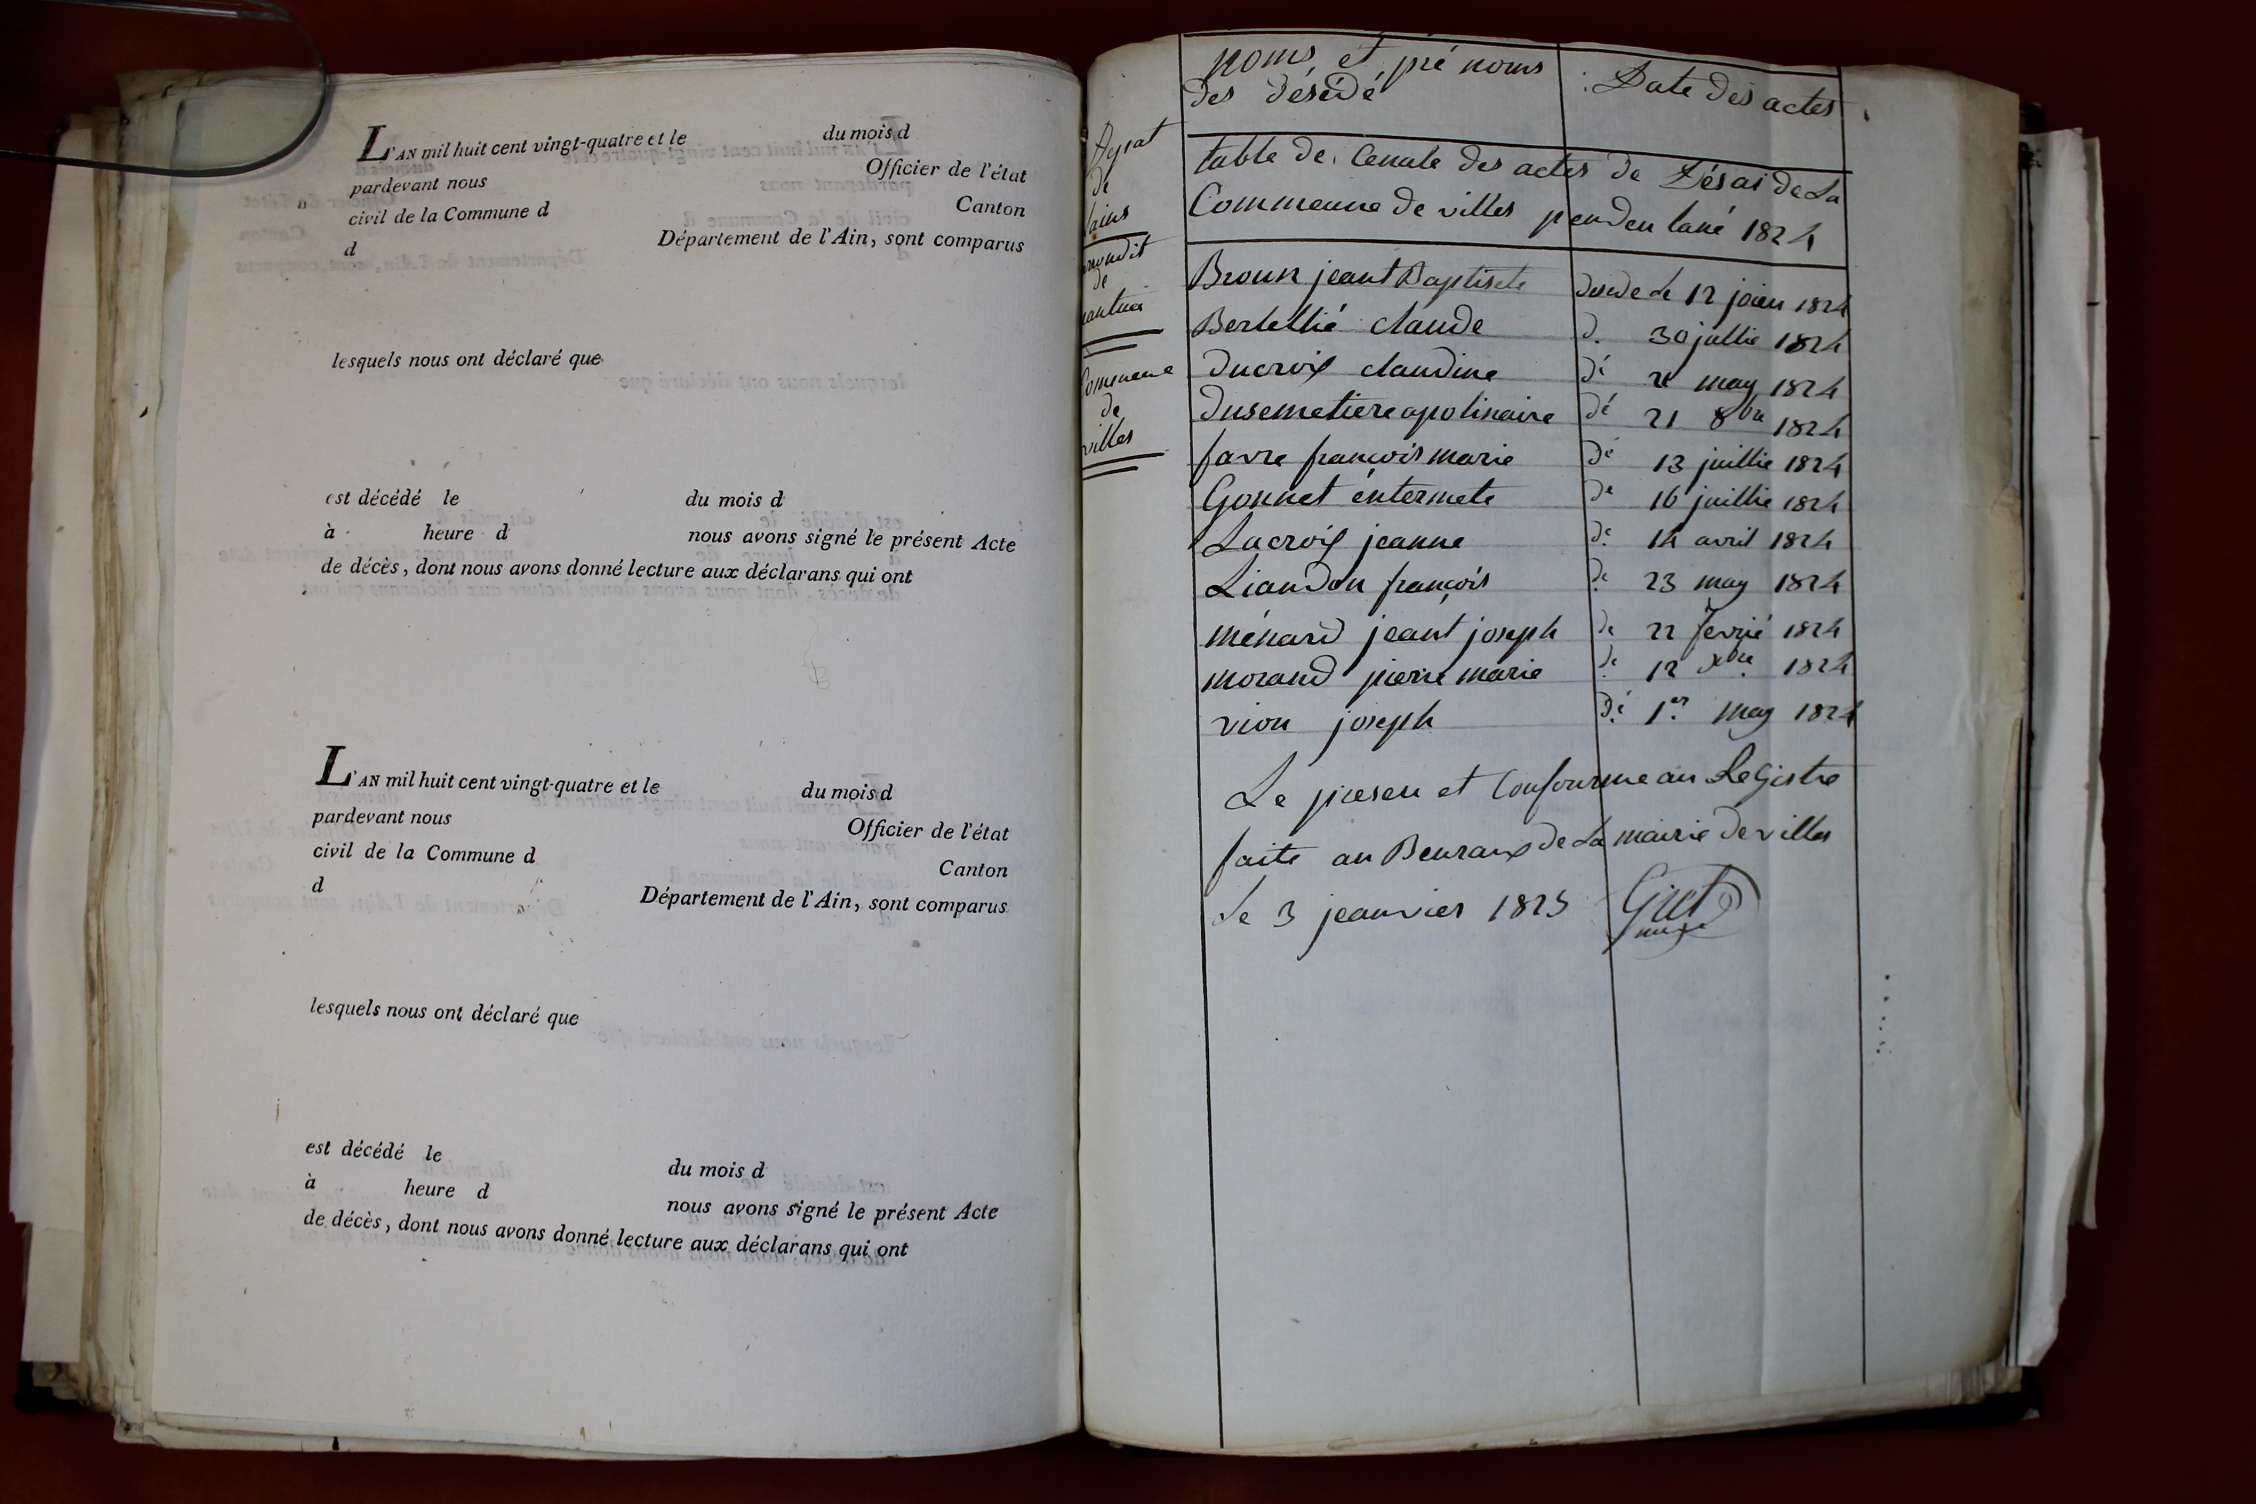 L'AN mil huit cent vingt-quatre et le du mois d
pardevant nous Officier de l'état
civil de la Commune d Canton
d Département de l'Ain, sont comparus
lesquels nous ont déclaré que
est décédé le du mois d
à heure d nous avons signé le présent Acte
de décès, dont nous avons donné lecture aux déclarans qui ont
L'AN mil huit cent vingt-quatre et le du mois d
pardevant nous Officier de l'état
civil de la Commune d Canton
d Département de l'Ain, sont comparus
lesquels nous ont déclaré que
est décédé le du mois d
à heure d nous avons signé le présent Acte
de décès, dont nous avons donné lecture aux déclarans qui ont
de
de
Commeune
de
villes
noms et pré noms Date des actes
des désédé
table de. Cenale des actes de Désai de La
Commeune de villes penden lané 1824
Broun jeant Baptiste deséde le 12 1824
Bertellié claude d. 30 jullie 1824
ducroix claudine dé may 1824
dusemetiere apolinaire dé 21 8bre 1824
favre françois marie dé 13 juillie 1824
Gonnet éntermete de 16 juillie 1824
Lacroix jeanne de 14 avril 1824
Liandon françois de 23 may 1824
ménard jeant joseph de 22 fevrié 1824
morand pierre marie de 12 xbre 1824
vion joseph dé 1er may 1824
Le presen et Confourme auRegistre
faite au Beuraux de La mairie de villes
Le 3 jeanvier 1825